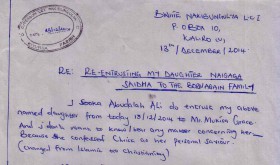 BWIITE NAKIBUNGKYTA LC I
P.O BOX 10,
KALIRO (U).
13th/DECEMBER/2014
RE: RE-ENTRUSTING MY DAUGHTER NAIGAGA
SAIDHA TO THE FAMILY
I Abudalah Ali do entrust my above
named daughter from today 13/12/2014 to Ms. Mukisa Grace.
And I don't want to know any matter concerning her.
Because she confessed Christ as her personal saviour.
(changed from Islamic to Christianity)